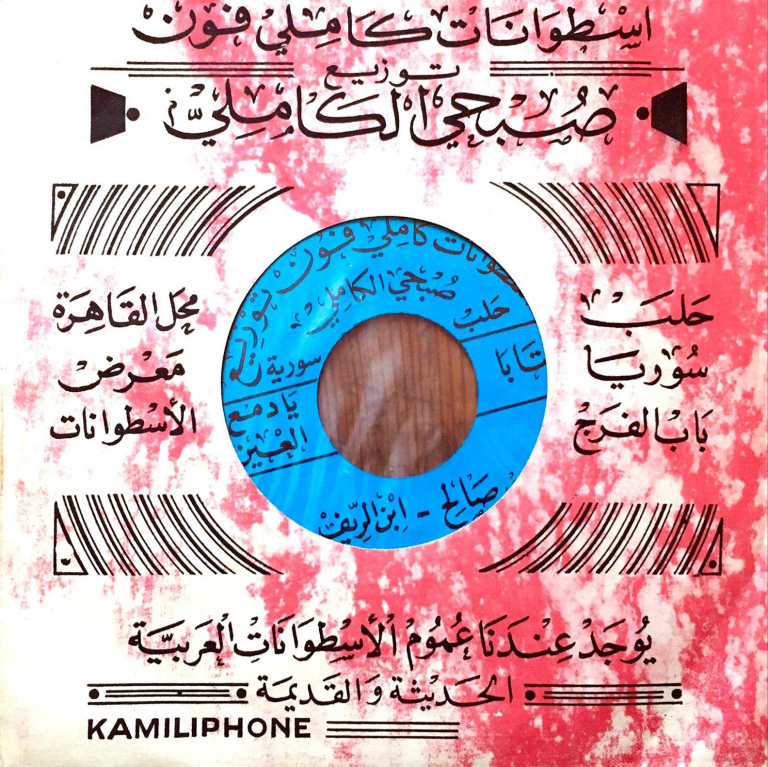 اسْطوَانَات كَامِلي فون
توزيع
صُبحي الكَامِليّ
حَلبَ
سُوريَا
بَابُ الفَرَج
محل القَاهِرَة
مَعْرضْ
الأسْطوانات
اسطوانات كامِلي فون توزيع
صُبحي الكامِلي
حَلب
سورية
تابا
يَا دمع
العَين
صَالح - ابْن الريف
يُوجَدْ عِنْدَنَا عُمُومْ الأسْطِوَانَاتِ العَربيَّة
الحَديثة وَالقَديمَة
KAMILIPHONE